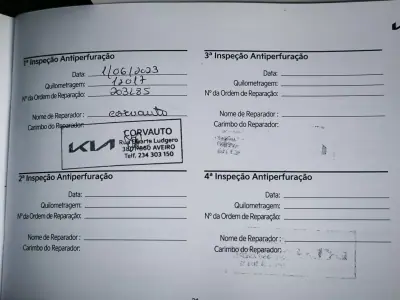 1ª Inspeção Antiperfuração
Data: 1/06/2023
Quilometragem: 12017
Nº da Ordem de Reparação: 203285
Nome de Reparador: corvauto
Carimbo do Reparador:
KIA
CORVAUTO
Rua Duarte Ludgero
AVEIRO
Telf. 234 303 150
2ª Inspeção Antiperfuração
Data:
Quilometragem:
Nº da Ordem de Reparação:
Nome de Reparador:
Carimbo do Reparador:
3ª Inspeção Antiperfuração
Data:
Quilometragem:
Nº da Ordem de Reparação:
Nome de Reparador:
Carimbo do Reparador:
4ª Inspeção Antiperfuração
Data:
Quilometragem:
Nº da Ordem de Reparação:
Nome de Reparador:
Carimbo do Reparador: